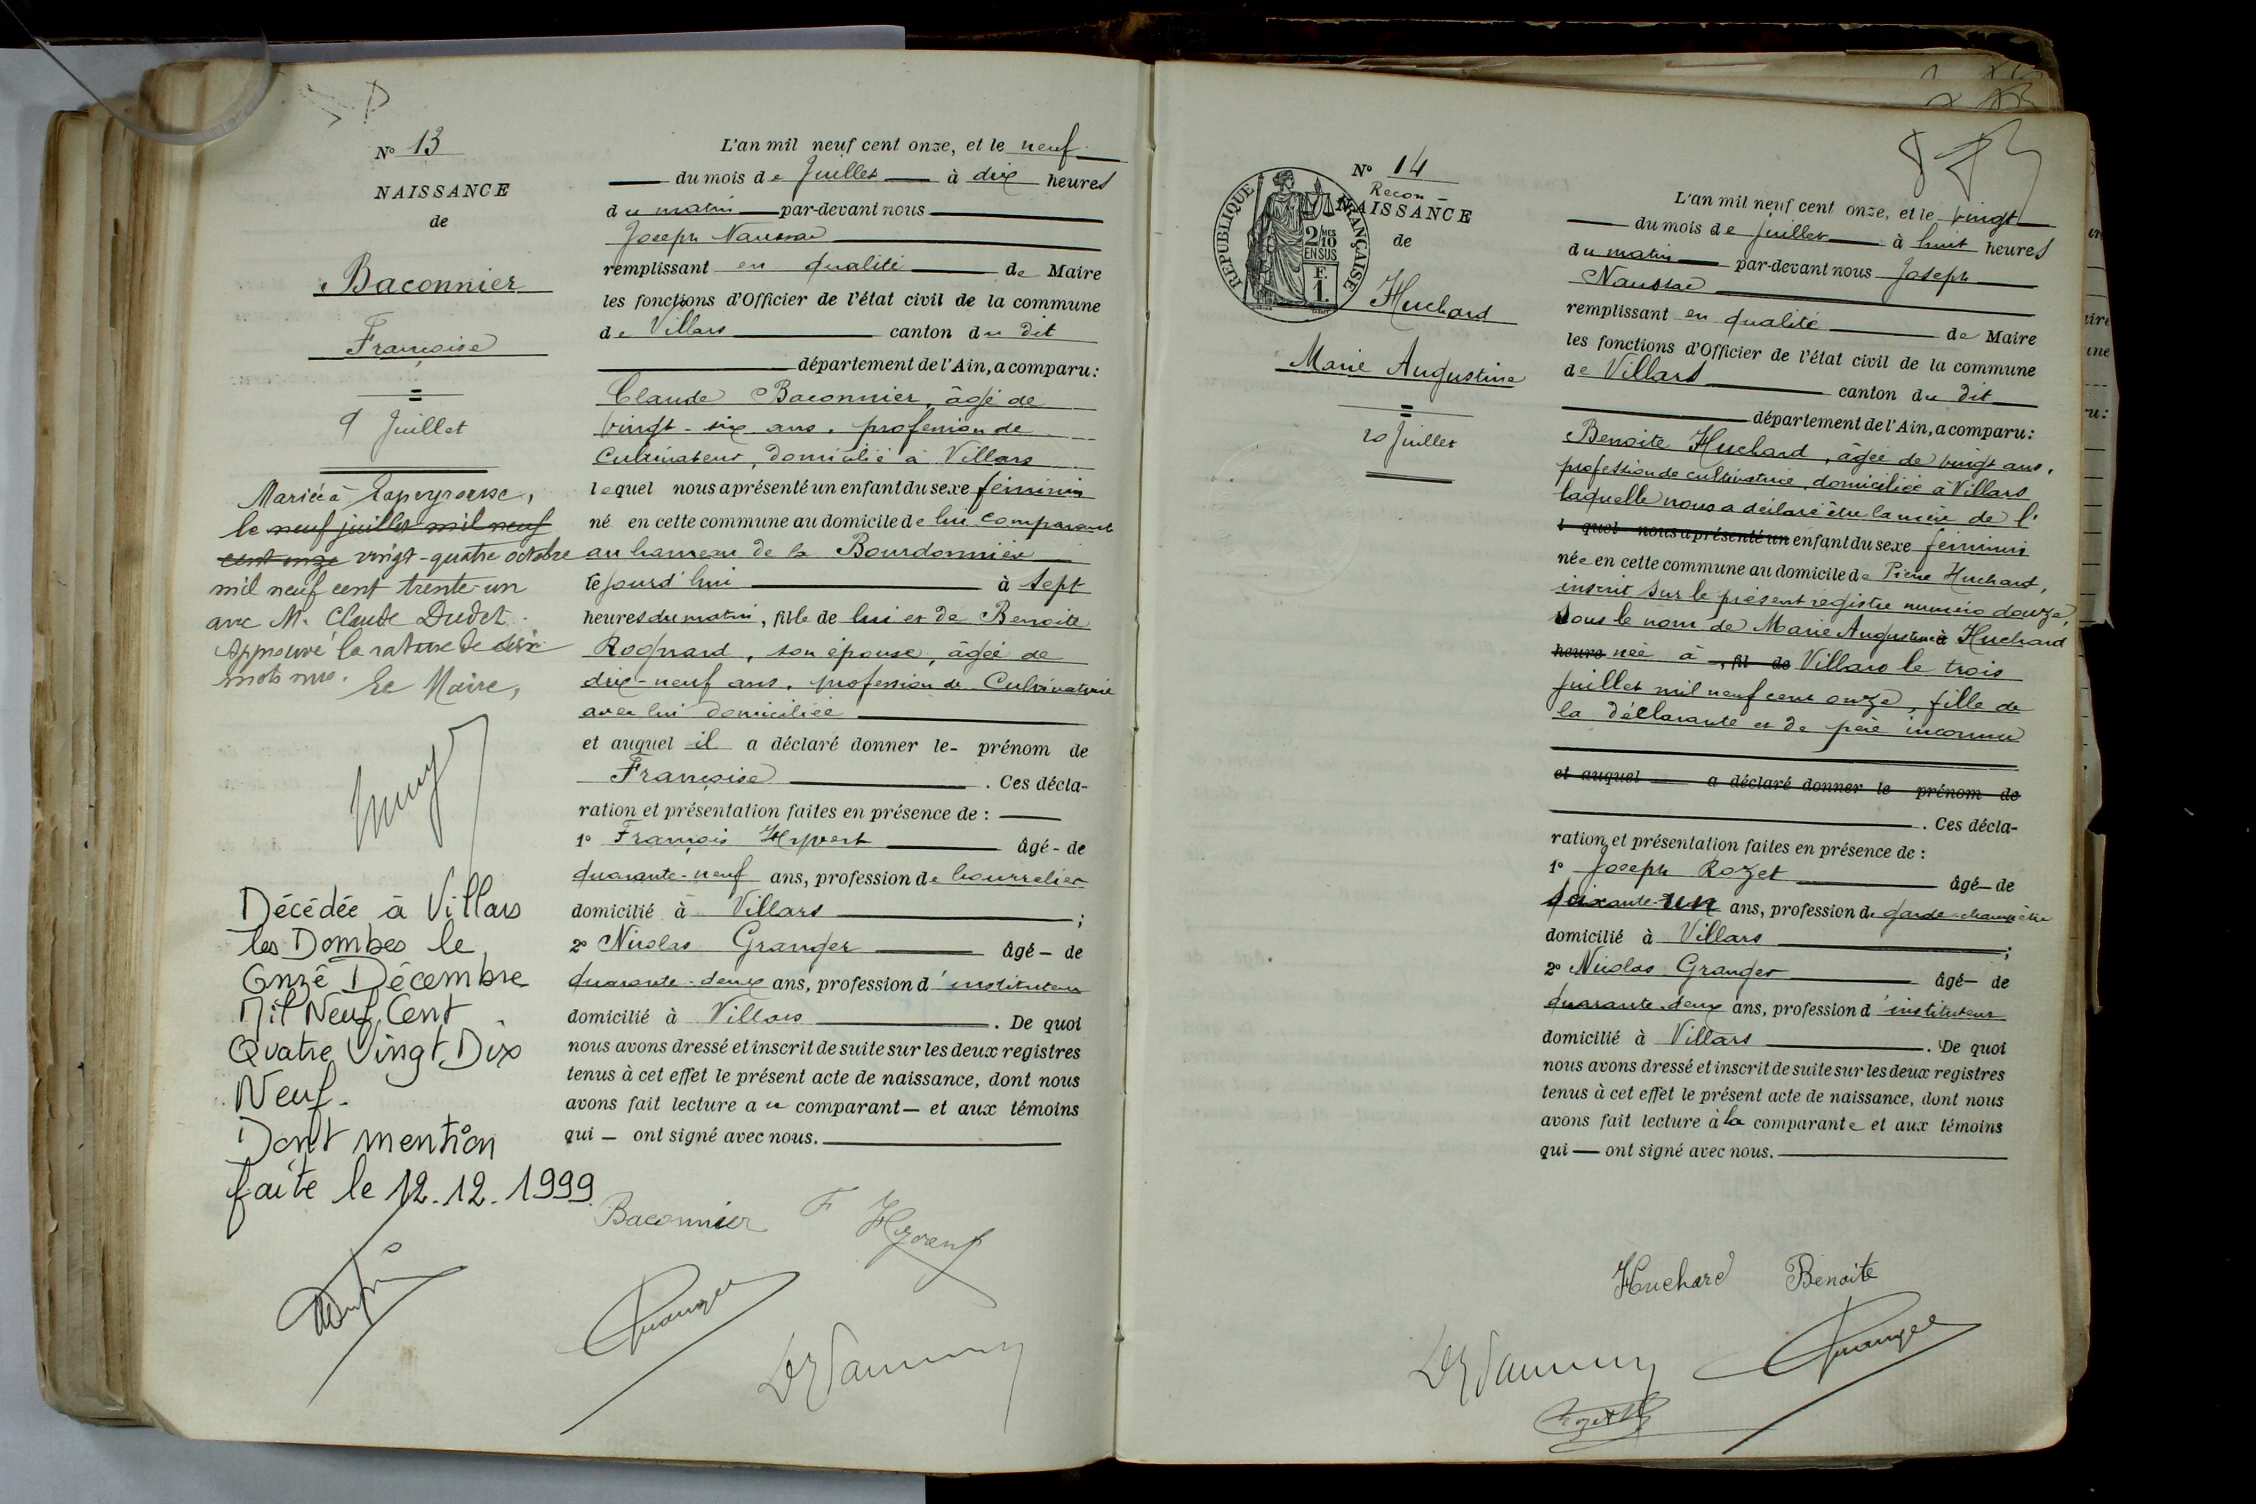 N° 13
NAISSANCE
de
Baconnier
Françoise
9 Juillet
Mariée à Lapeyrouse,
le neuf juillet mil neuf
cent onze vingt-quatre octobre
mil neuf cent trente un
avec M. Claude Dudet.
Approuvé la rature de six
mots nuls. Le Maire,
Décédée à Villars
les Dombes le
Onze Décembre
Mil Neuf Cent
Quatre Vingt Dix
Neuf.
Dont mention
faite le 12.12.1999
L'an mil neuf cent onze, et le neuf
du mois de Juillet à dix heures
du matin par-devant nous
Joseph
remplissant en qualité de Maire
les fonctions d'Officier de l'état civil de la commune
de Villars canton du dit
département de l'Ain, a comparu:
Claude Baconnier, âgé de
vingt-six ans, profession de
Cultivateur, domicilié à Villars
lequel nous a présenté un enfant du sexe féminin
né en cette commune au domicile de lui comparant
au hameau de la Bourdonnière
cejourd'hui à sept
heures du matin, fille de lui et de Benoite
Rognard, son épouse, âgée de
dix-neuf ans, profession de Cultivatrice
avec lui domiciliée
et auquel il a déclaré donner le- prénom de
Françoise . Ces décla-
ration et présentation faites en présence de :
1° François Hyvert âgé - de
quarante-neuf ans, profession de bourrelier
domicilié à Villars ;
2° Nicolas Granger âgé - de
quarante-deux ans, profession d'instituteur
domicilié à Villars . De quoi
nous avons dressé et inscrit de suite sur les deux registres
tenus à cet effet le présent acte de naissance, dont nous
avons fait lecture au comparant — et aux témoins
qui — ont signé avec nous.
Baconnier F Hyvert
Granger
N° 14
Recon-
NAISSANCE
de
RÉPUBLIQUE FRANÇAISE
2/10 MES
EN SUS
F.
1.
Huchard
Marie Augustine
20 Juillet
L'an mil neuf cent onze, et le vingt
du mois de juillet à huit heures
du matin par-devant nous Joseph
remplissant en qualité de Maire
les fonctions d'Officier de l'état civil de la commune
de Villars canton du dit
département de l'Ain, a comparu:
Benoite Huchard, âgée de vingt ans,
profession de cultivatrice, domiciliée à Villars
laquelle nous a déclaré être la mère de l'
l quel nous a présenté un enfant du sexe féminin
née en cette commune au domicile de Pierre Huchard,
inscrit sur le présent registre numéro douze,
sous le nom de Marie Augustine à Huchard
heure née à , fil de Villars le trois
juillet mil neuf cent onze, fille de
la déclarante et de père inconnu
et auquel a déclaré donner le prénom de
. Ces décla-
ration et présentation faites en présence de :
1° Joseph Rozet âgé — de
soixante-un ans, profession de garde-champêtre
domicilié à Villars ;
2° Nicolas Granger âgé — de
quarante-deux ans, profession d'instituteur
domicilié à Villars . De quoi
nous avons dressé et inscrit de suite sur les deux registres
tenus à cet effet le présent acte de naissance, dont nous
avons fait lecture à la comparante et aux témoins
qui — ont signé avec nous.
Huchard Benoite
Granger
Rozet